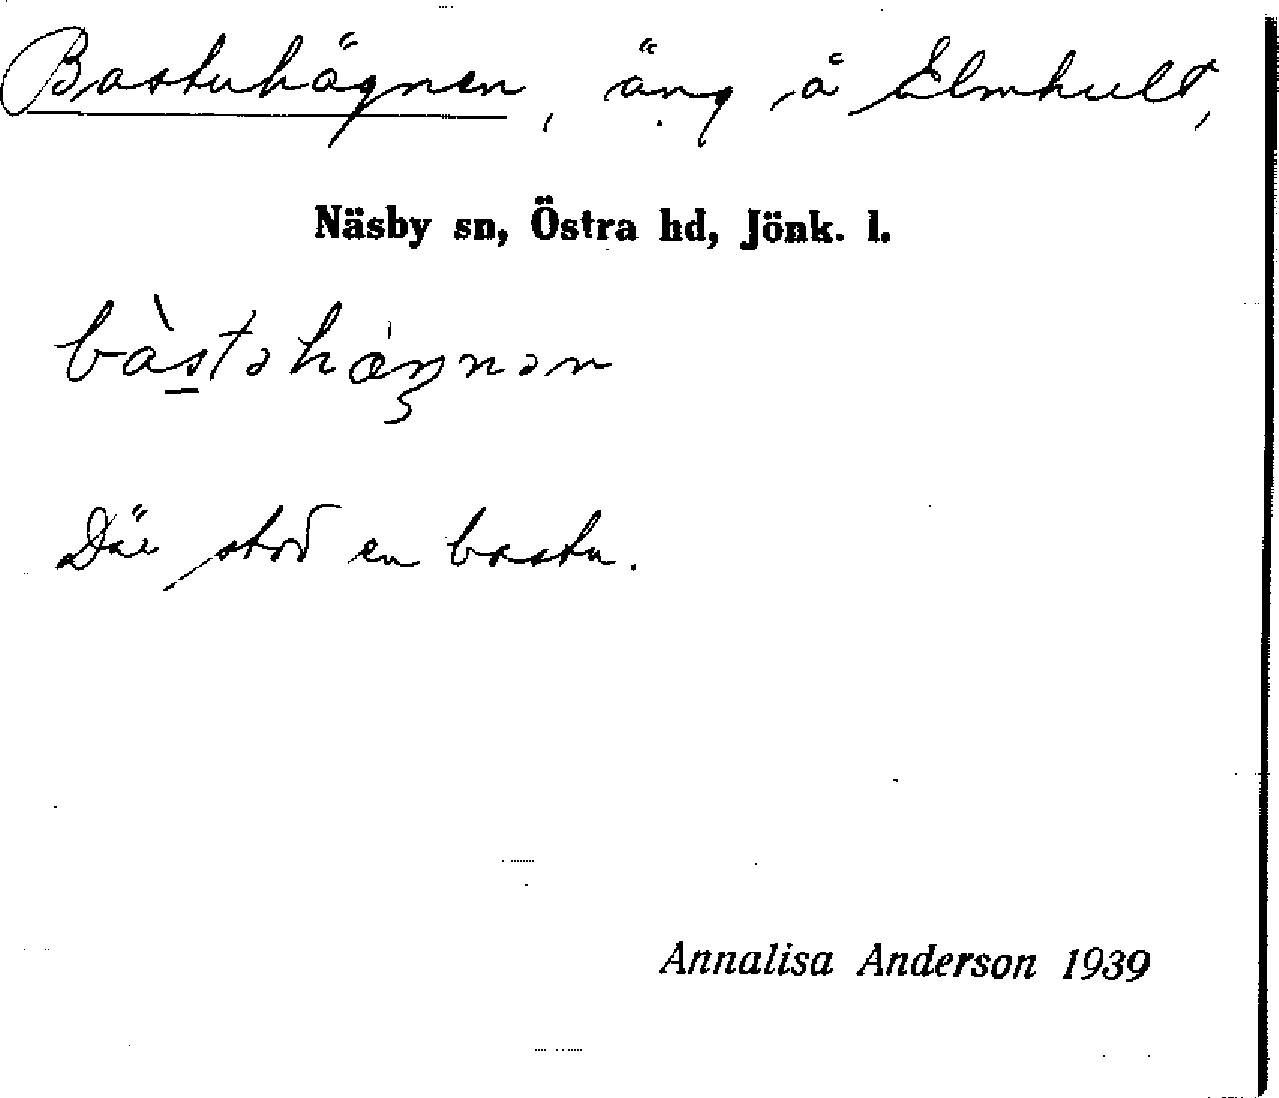 Bastuhägnen, äng å Elmhult,
Näsby sn, Östra hd, Jönk. l.
bàstəhæŋnən
Där stod en bastu.
Annalisa Anderson 1939